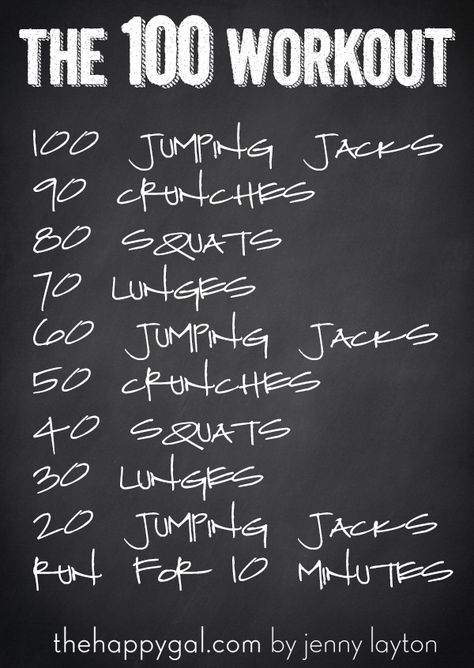 THE 100 WORKOUT
100 JUMPING JACKS
90 CRUNCHES
80 SQUATS
70 LUNGES
60 JUMPING JACKS
50 CRUNCHES
40 SQUATS
30 LUNGES
20 JUMPING JACKS
RUN FOR 10 MINUTES
thehappygal.com by jenny layton